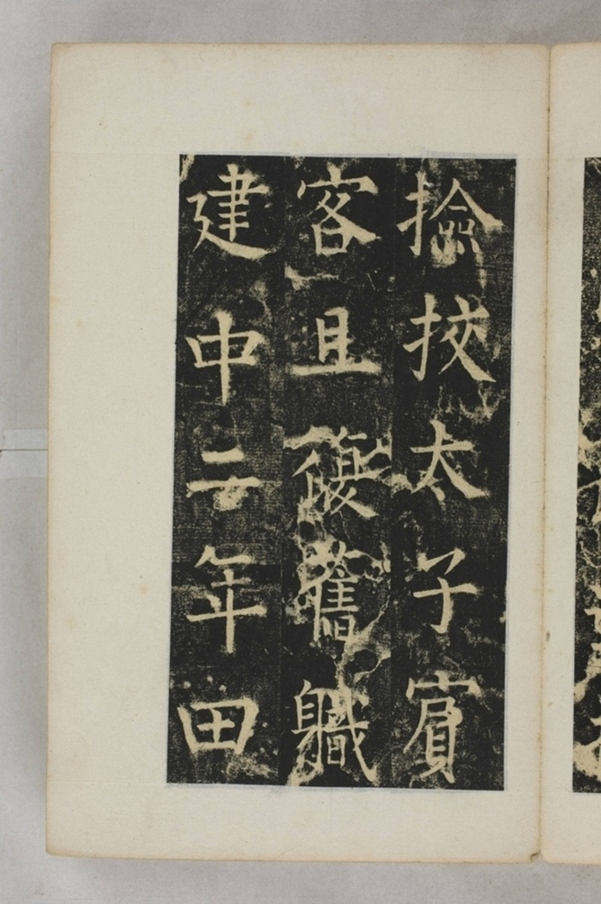 撿挍太子賔
客且復舊軄
建中二年田